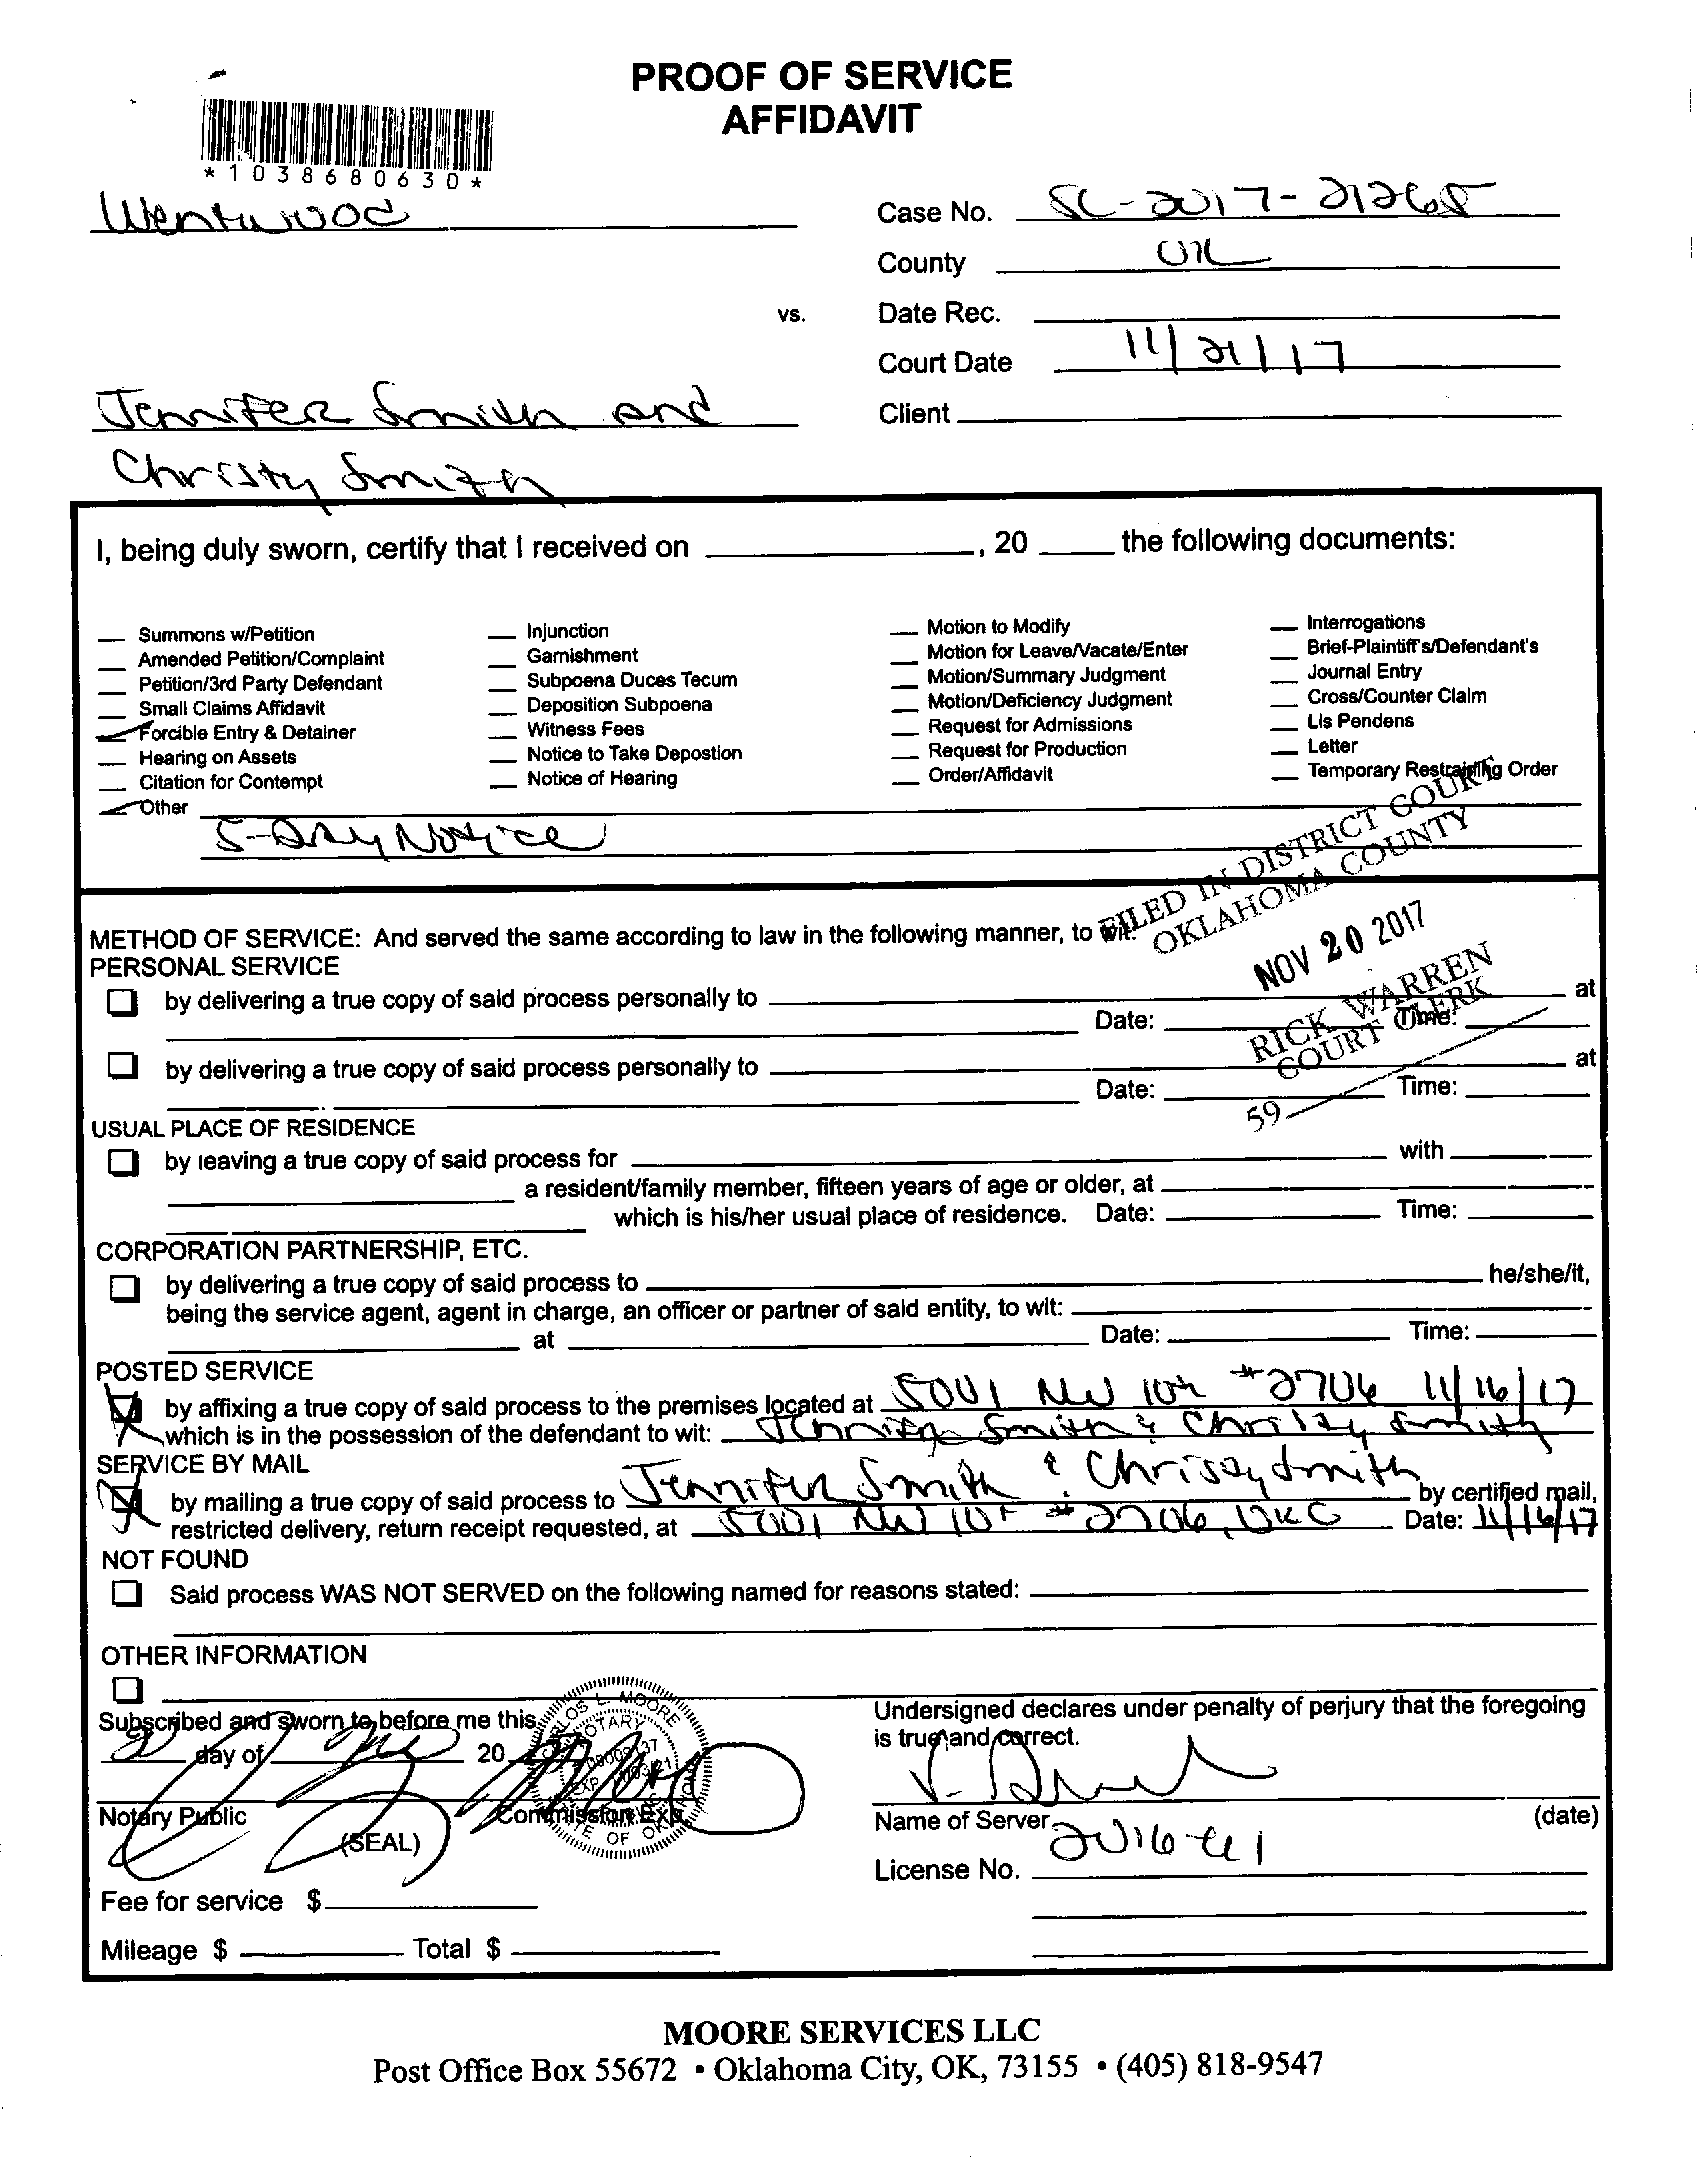 PROOF OF SERVICE
AFFIDAVIT
*1038680630*
Wentwood
Case No. SC-2017-21265
County OK
vs.
Date Rec.
Court Date 11/21/17
Jennifer Smith and
Client
Christy Smith
I, being duly sworn, certify that I received on ____, 20 ____ the following documents:
Summons w/Petition
Amended Petition/Complaint
Petition/3rd Party Defendant
Small Claims Affidavit
Forcible Entry & Detainer
Hearing on Assets
Citation for Contempt
Other
Injunction
Garnishment
Subpoena Duces Tecum
Deposition Subpoena
Witness Fees
Notice to Take Depostion
Notice of Hearing
Motion to Modify
Motion for Leave/Vacate/Enter
Motion/Summary Judgment
Motion/Deficiency Judgment
Request for Admissions
Request for Production
Order/Affidavit
Interrogations
Brief-Plaintiff's/Defendant's
Journal Entry
Cross/Counter Claim
Lis Pendens
Letter
Temporary Restraining Order
5-Day Notice
FILED IN DISTRICT COURT
OKLAHOMA COUNTY
NOV 20 2017
RICK WARREN
COURT CLERK
59
METHOD OF SERVICE: And served the same according to law in the following manner, to wit:
PERSONAL SERVICE
by delivering a true copy of said process personally to ____ at
Date: ____ Time:
by delivering a true copy of said process personally to ____ at
Date: ____ Time:
USUAL PLACE OF RESIDENCE
by leaving a true copy of said process for ____ with
a resident/family member, fifteen years of age or older, at
which is his/her usual place of residence. Date: ____ Time:
CORPORATION PARTNERSHIP, ETC.
by delivering a true copy of said process to ____ he/she/it,
being the service agent, agent in charge, an officer or partner of said entity, to wit:
at ____ Date: ____ Time:
POSTED SERVICE
by affixing a true copy of said process to the premises located at 5001 NW 10th #2706 11/16/17
which is in the possession of the defendant to wit: Jennifer Smith & Christy Smith
SERVICE BY MAIL
by mailing a true copy of said process to Jennifer Smith & Chrissy Smith by certified mail,
restricted delivery, return receipt requested, at 5001 NW 10th #2706, OKC Date: 11/16/17
NOT FOUND
Said process WAS NOT SERVED on the following named for reasons stated:
OTHER INFORMATION
Subscribed and sworn to before me this
20 day of Nov 20
Notary Public
(SEAL)
Commission Exp.
CARLOS L. MOORE
NOTARY
STATE OF OKLAHOMA
Undersigned declares under penalty of perjury that the foregoing
is true and correct.
Name of Server (date)
License No.
Fee for service $
Mileage $ ____ Total $
MOORE SERVICES LLC
Post Office Box 55672 • Oklahoma City, OK, 73155 • (405) 818-9547